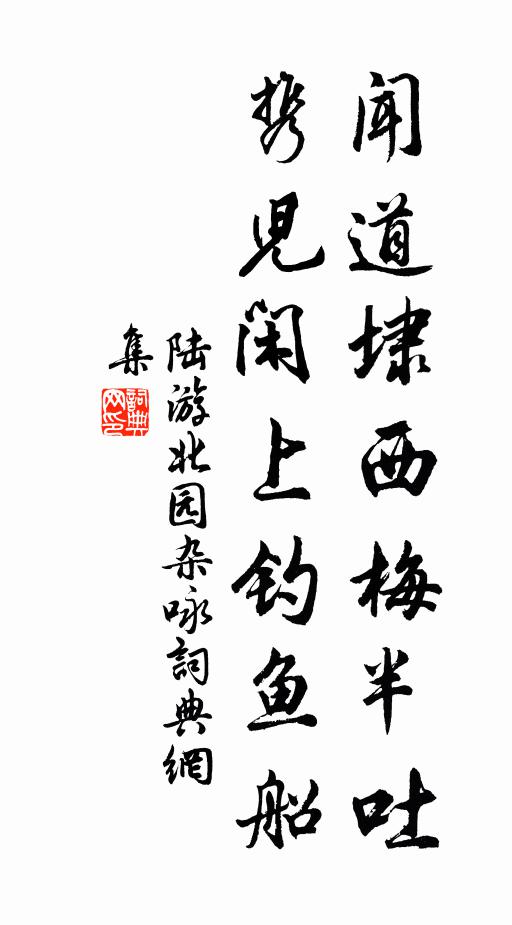 闻道埭西梅半吐
携児闲上钓鱼船
陆游北园杂咏詞典網
集
詞典网印